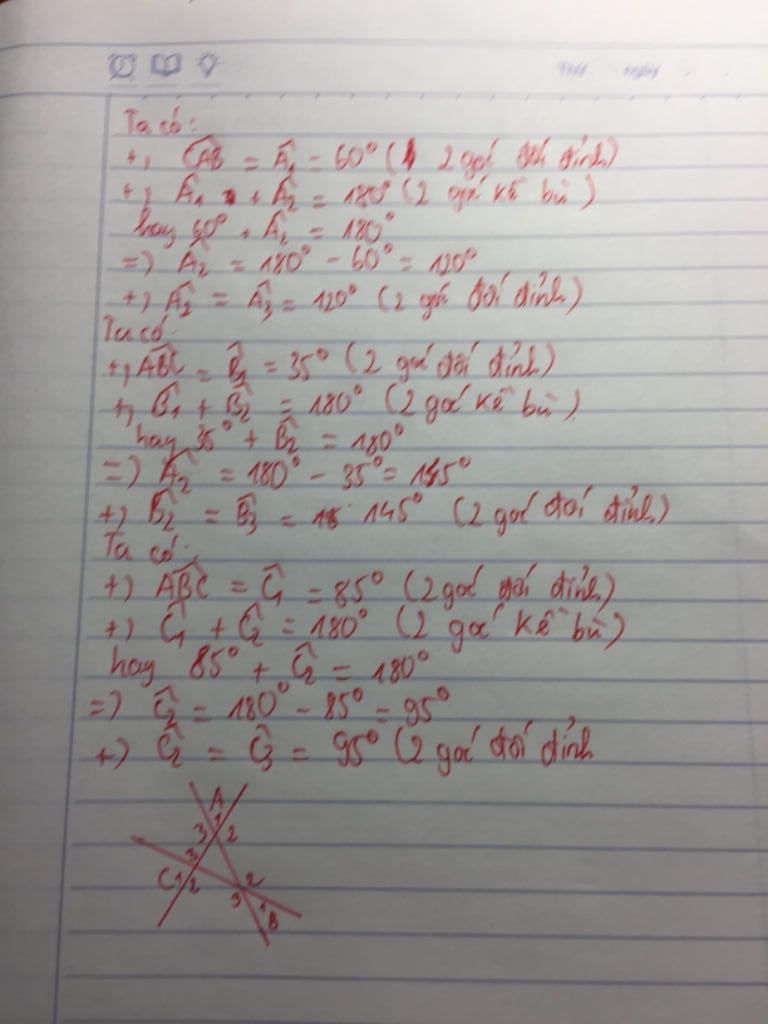 Ta có:
+, CAB = Â₁ = 60° ( 2 góc đối đỉnh)
+, Â₁ + Â₂ = 180° (2 góc kề bù)
hay 60° + Â₂ = 180°
=) Â₂ = 180° - 60° = 120°
+) Â₂ = Â₃ = 120° (2 góc đối đỉnh)
Ta có.
+, ABC = B̂₁ = 35° (2 góc đối đỉnh)
+, B̂₁ + B̂₂ = 180° (2 góc kề bù)
hay 35° + B̂₂ = 180°
=) Â₂ = 180° - 35° = 145°
+, B̂₂ = B̂₃ = 145° (2 góc đối đỉnh)
Ta có:
+) ABC = Ĉ₁ = 85° (2 góc đối đỉnh)
+) Ĉ₁ + Ĉ₂ = 180° (2 góc kề bù)
hay 85° + Ĉ₂ = 180°
=) Ĉ₂ = 180° - 85° = 95°
+) Ĉ₂ = Ĉ₃ = 95° (2 góc đối đỉnh
A
1
3 2
3
C 1 2
2
3 1
B